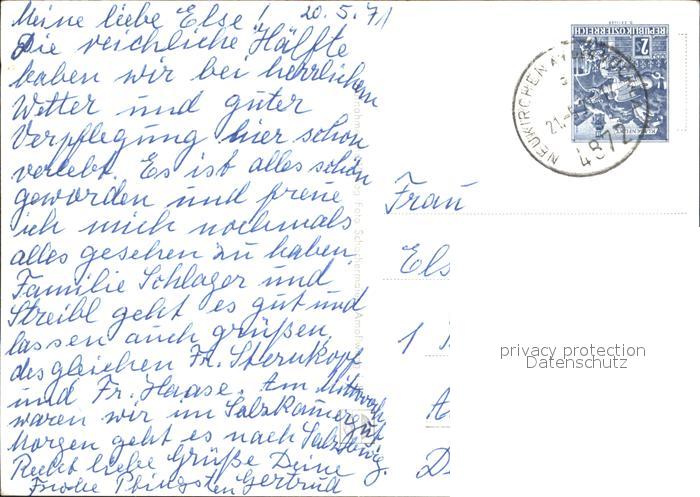 Meine liebe Else! 20.5.71
Die reichliche Hälfte
haben wir bei herrlichem
Wetter und guter
Verpflegung hier schon
verlebt. Es ist alles schön
geworden und freue
ich mich nochmals
alles gesehen zu haben.
Familie Schlager und
Streibl geht es gut und
lassen auch grüßen,
desgleichen Fr. Sternkopf
und Fr. Haase. Am Mittwoch
waren wir im Salzkammergut
Morgen geht es nach Salzburg.
Recht liebe Grüße Deine
Frohe Pfingsten Gertrud
REPUBLIK ÖSTERREICH
2
NEUKIRCHEN
21.
4872
Frau
Els
1
A
D
privacy protection
Datenschutz